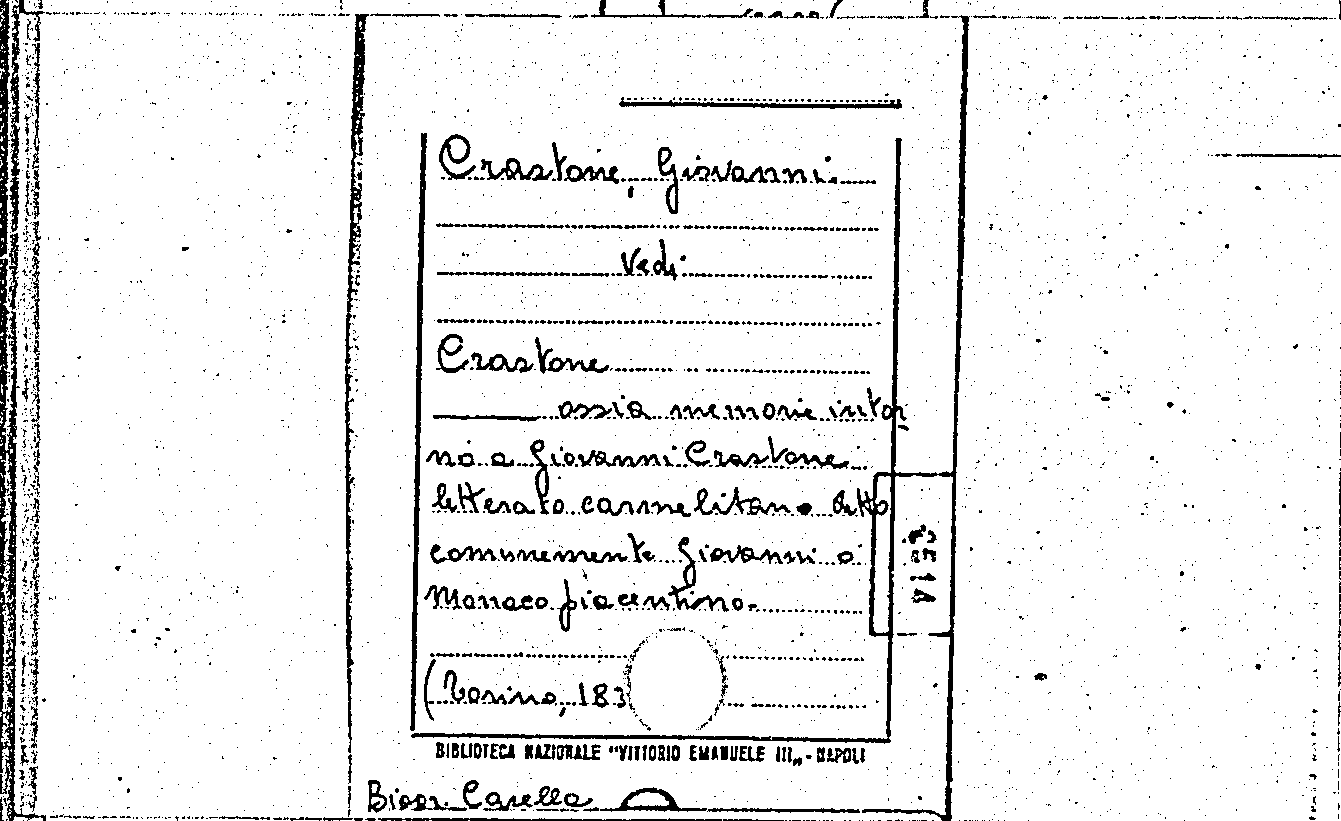 Crastone, Giovanni.
Vedi:
Crastone
ossia memorie intor,
no a Giovanni Crastone
letterato carmelitano detto
comunemente Giovanni o
Monaco piacentino.
(Torino, 183
BIBLIOTECA NAZIONALE "VITTORIO EMANUELE III„ - NAPOLI
Biogr. Casella